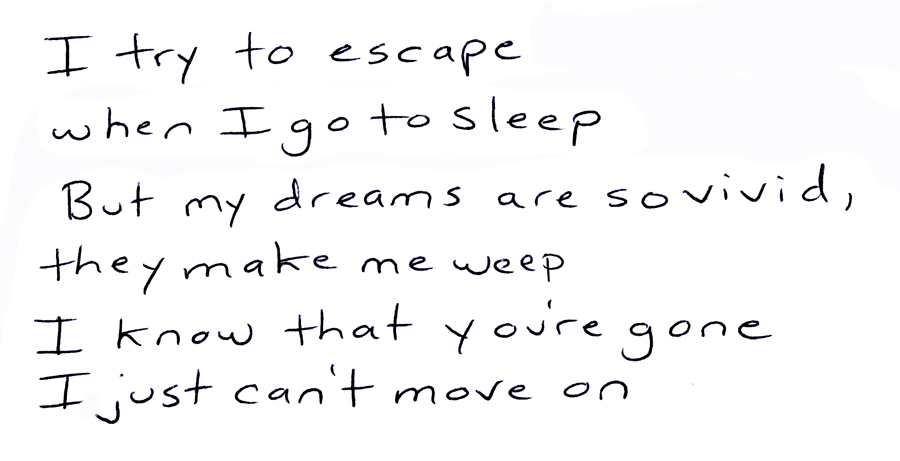 I try to escape
when I go to sleep
But my dreams are so vivid,
they make me weep
I know that you're gone
I just can't move on